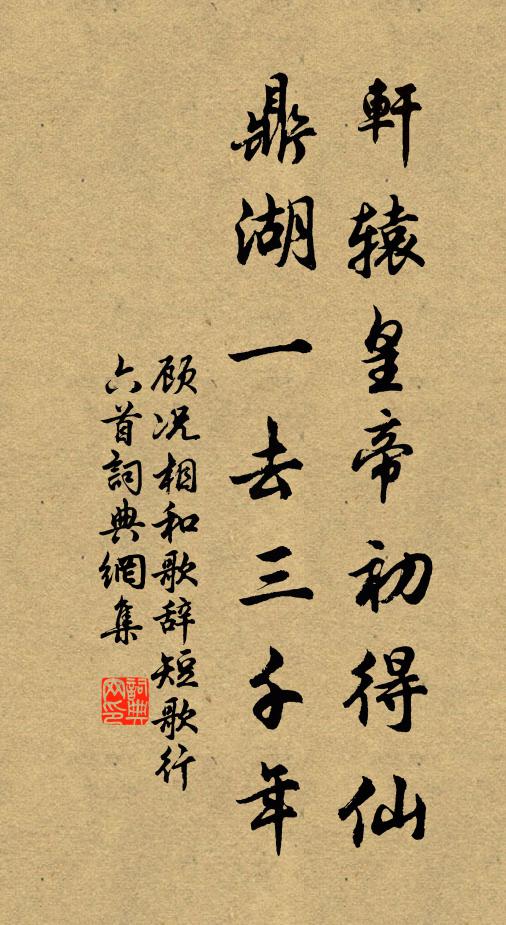 軒辕皇帝初得仙
鼎湖一去三千年
顾况相和歌辞短歌行
六首詞典網集
詞典
网印